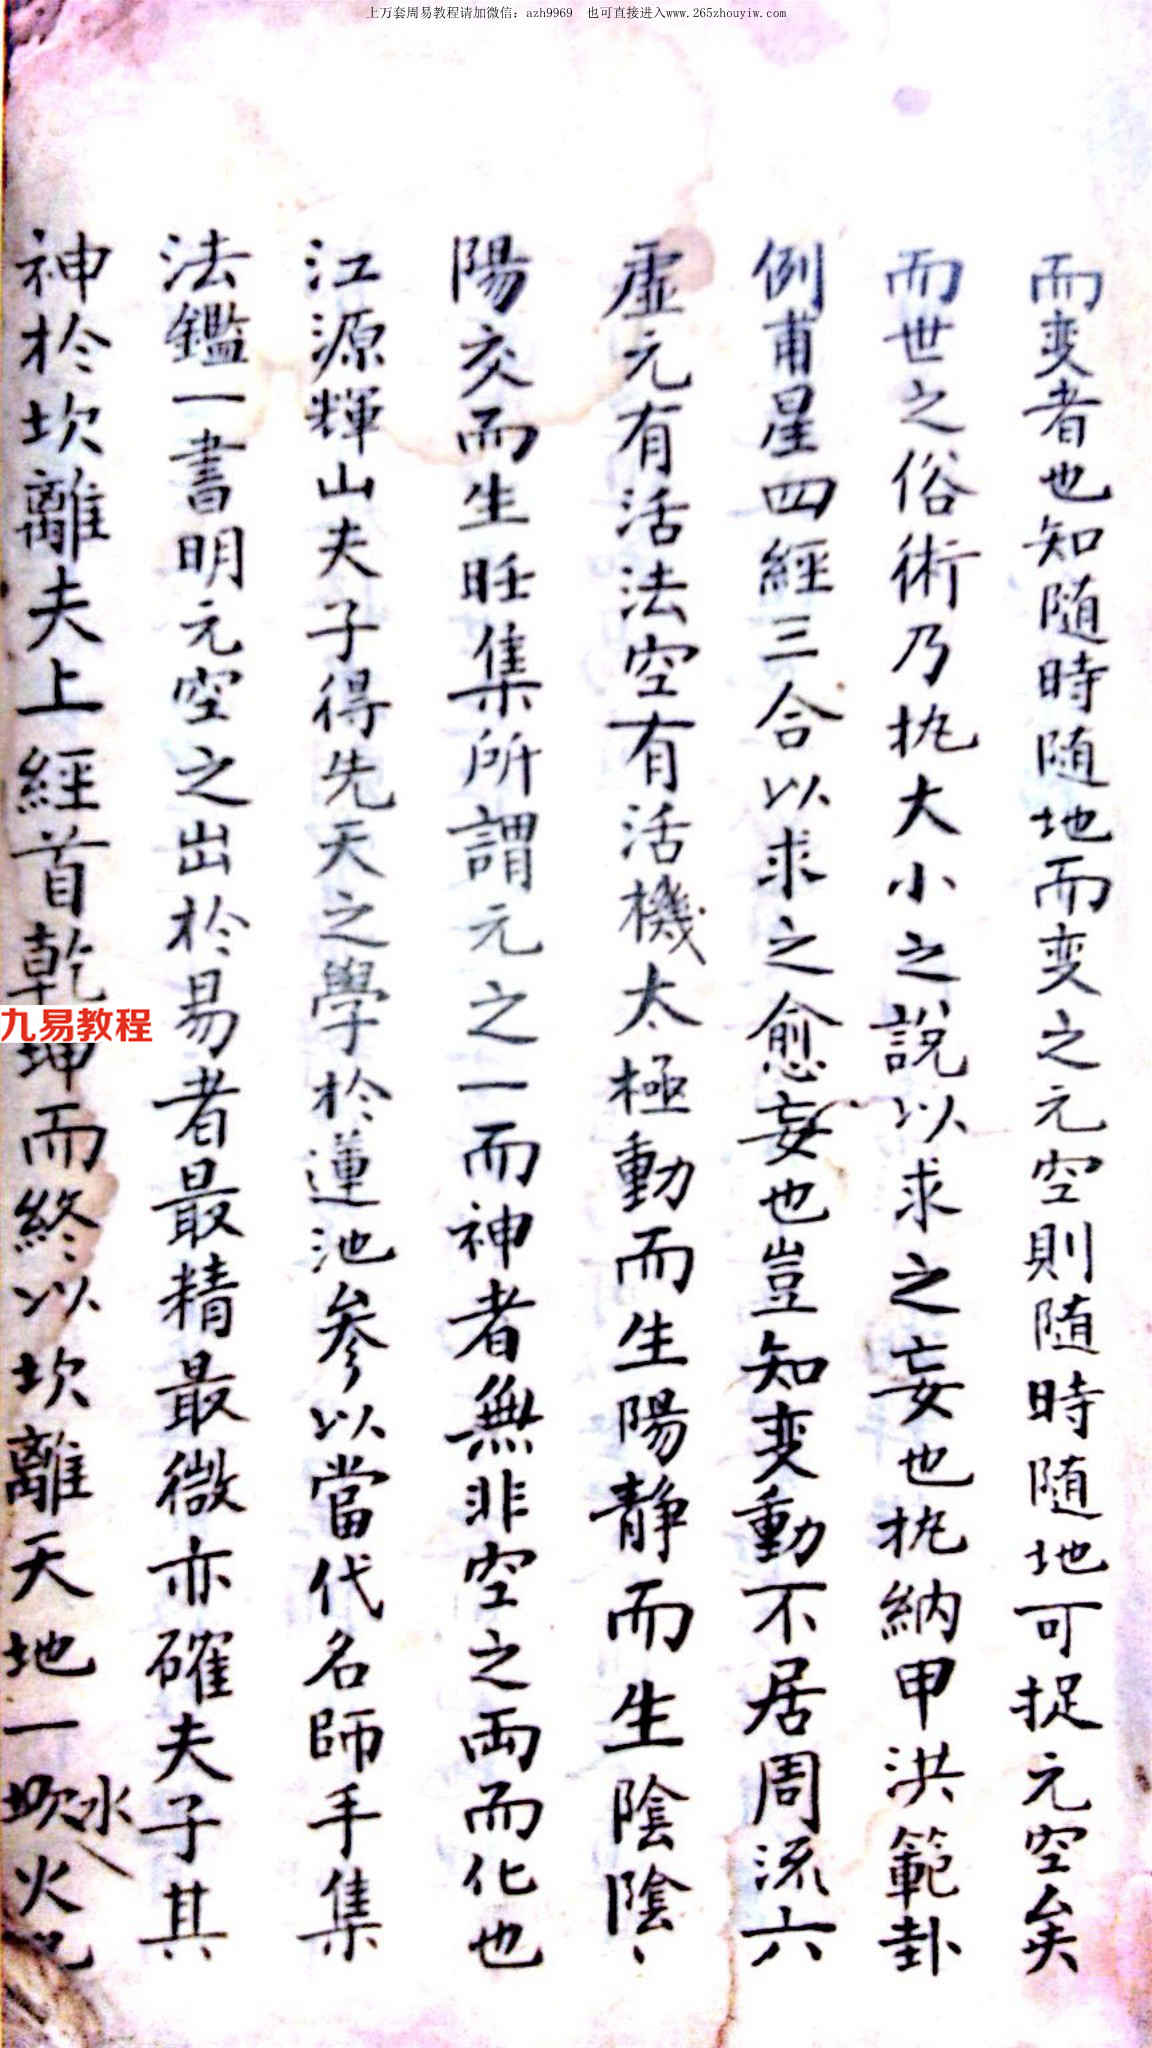 上万套周易教程请加微信：azh9969 也可直接进入www.265zhouyiw.com
而变者也知随時随地而变之元空則随時随地可捉元空矣
而世之俗術乃执大小之說以求之妄也执納甲洪範卦
例甫星四經三合以求之愈妄也豈知变動不居周流六
虛元有活法空有活機太極動而生陽静而生陰陰、
陽交而生旺集所謂元之一而神者無非空之両而化也
江源輝山夫子得先天之學於蓮池参以當代名師手集
法鑑一書明元空之出於易者最精最微亦確夫子其
神於坎離夫上經首乾坤而終以坎離天地一坎水火
九易教程